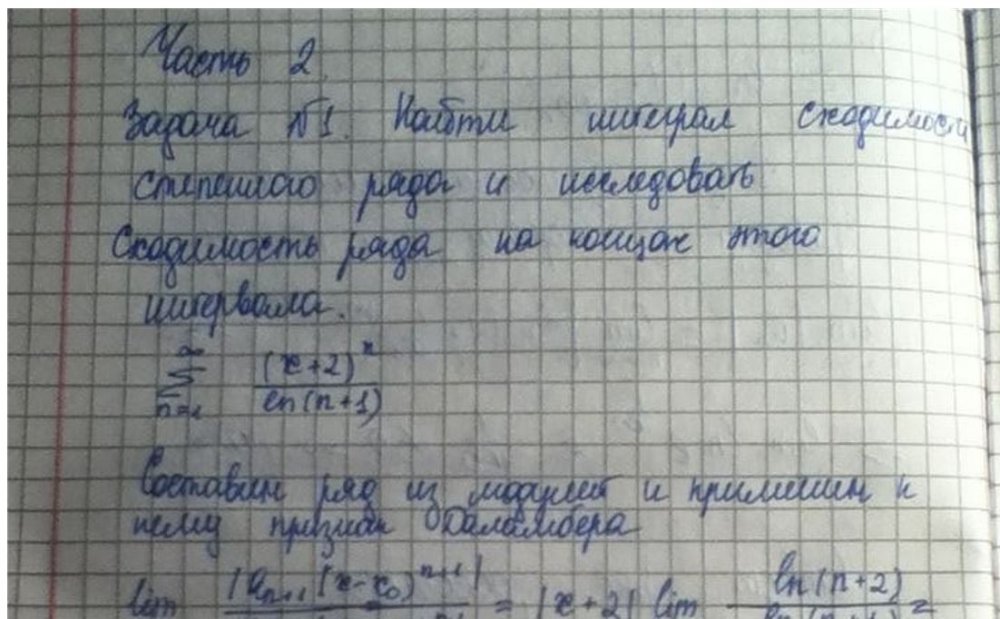 Часть 2.
Задача №1. Найти интеграл сходимости
степенного ряда и исследовать
Сходимость ряда на концах этого
интервала.
∞
∑ (x+2)^n
n=1 ln(n+1)
Составим ряд из модулей и применим к
нему признак Даламбера
lim |a_{n+1}(x-x_0)^{n+1}| = |x+2| lim ln(n+2) =